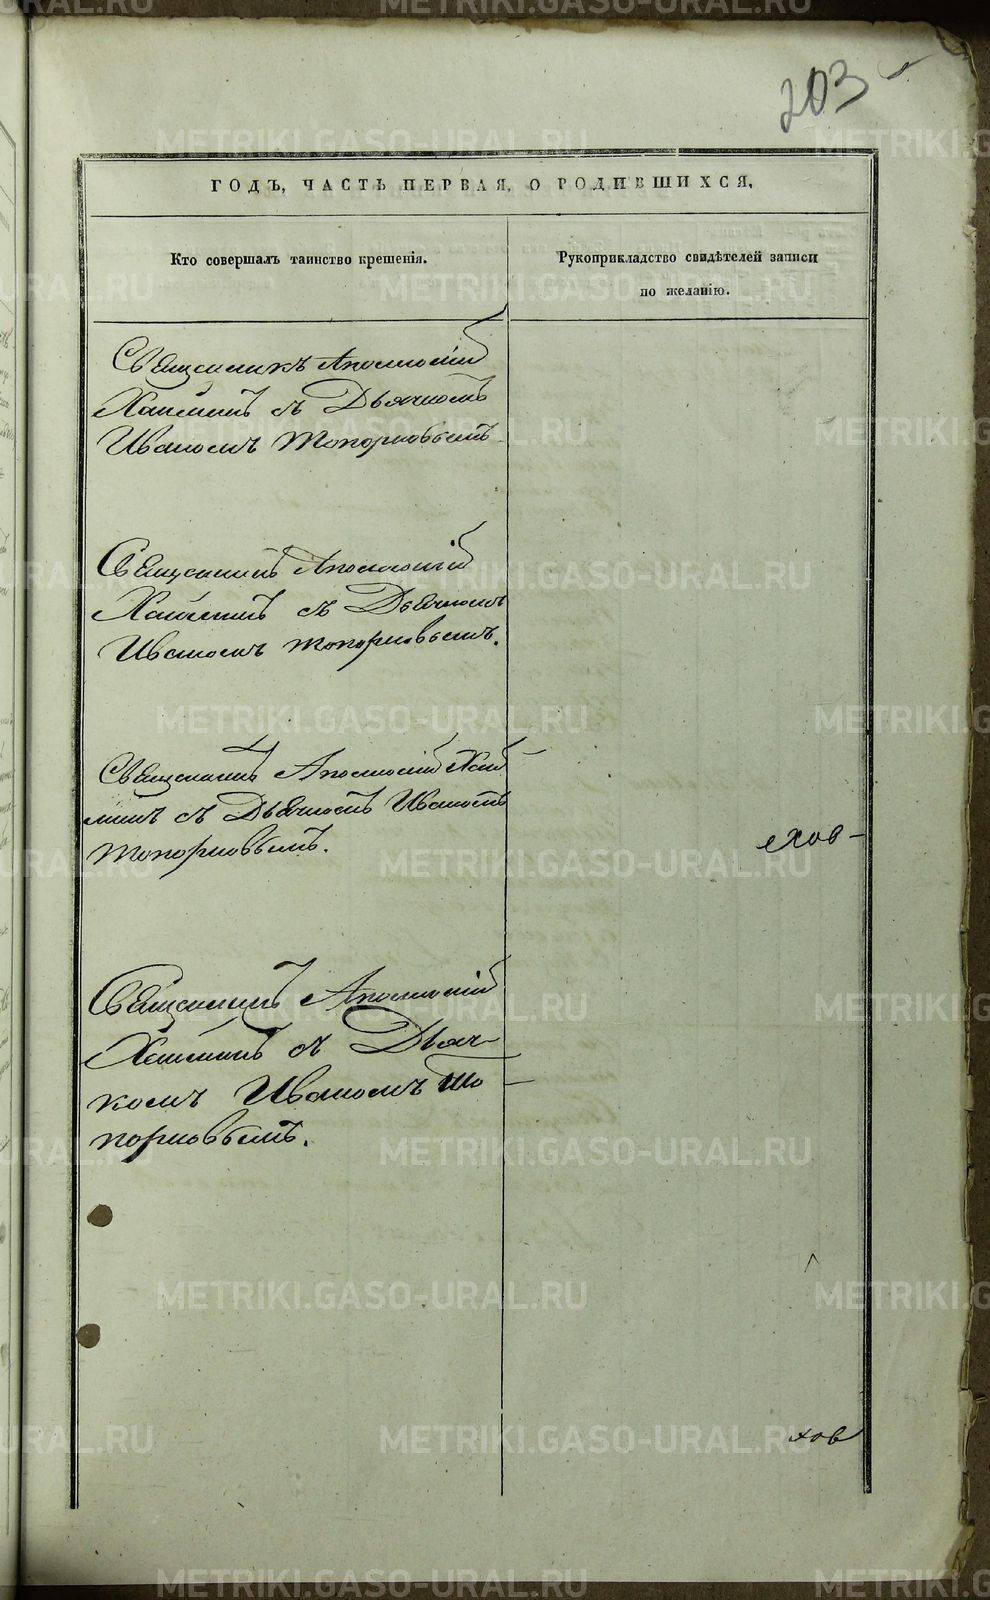 203
ГОДЪ, ЧАСТЬ ПЕРВАЯ, О РОДИВШИХСЯ,
Кто совершалъ таинство крещенія.
Рукоприкладство свидѣтелей записи
по желанію.
Священникъ Аполлоній
съ Дьячкомъ
Иваномъ Топорковымъ
Священникъ Аполлоній
съ Дьячкомъ
Иваномъ Топорковымъ.
Священникъ Аполлоній
съ Дьячкомъ Иваномъ
Топорковымъ.
Священникъ Аполлоній
съ Дьяч-
комъ Иваномъ То
порковымъ.
хов
METRIKI.GASO-URAL.RU